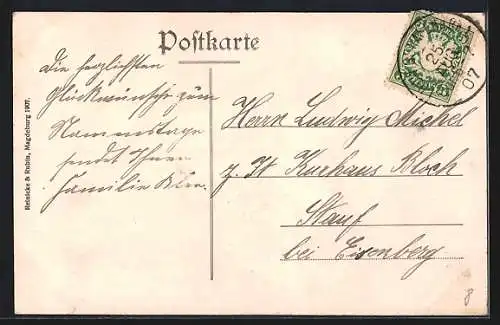 Postkarte
Die herzlichsten
Glückwünsche zum
Namenstage
sendet Ihnen
Familie
Herrn Ludwig Michel
z. Zt Kurhaus Bloch
Stauf
bei Eisenberg
Reinicke & Rubin, Magdeburg 1907.
25
07
8